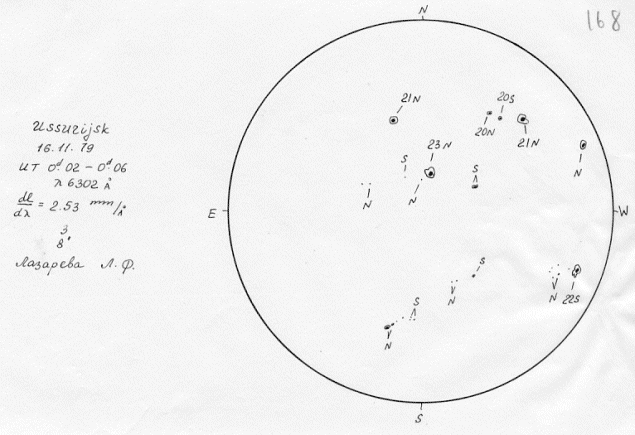 168
N
Ussurijsk
16.11.79
UT 0ᵈ.02 – 0ᵈ.06
λ 6302 Å
dl/dλ = 2.53 mm/Å
3
8"
Лазарева Л. Ф.
21N
20S
20N
21N
23N
N
S
S
N
N
E
W
S
N
N
22S
S
N
S